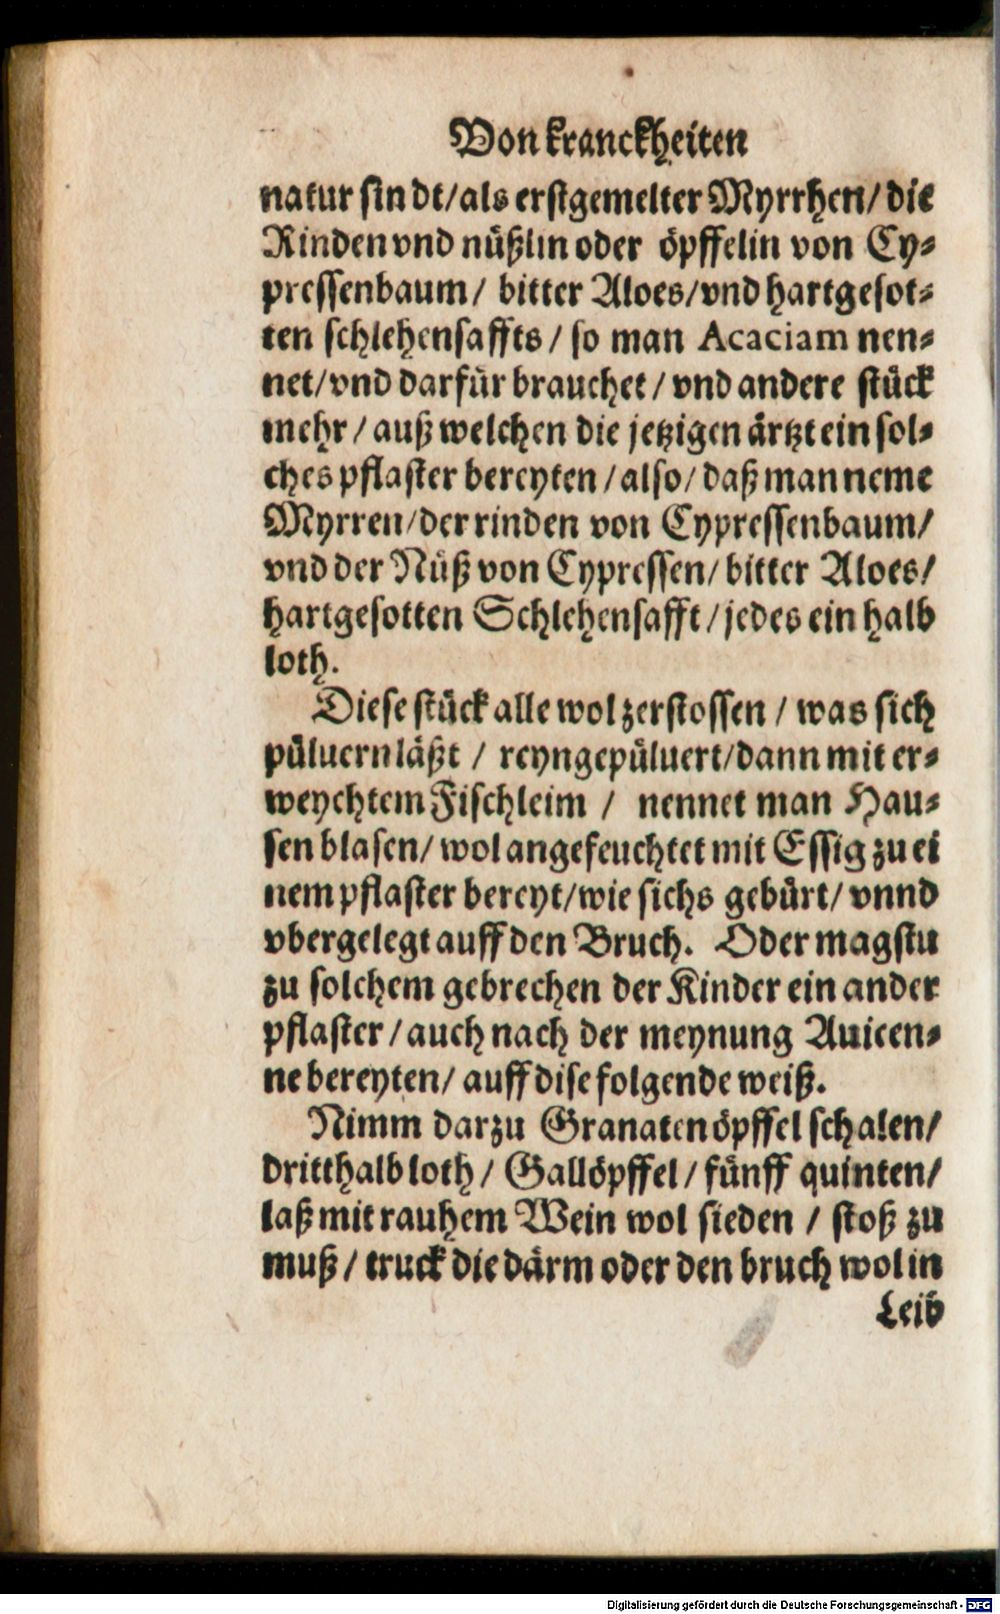 Von kranckheiten
natur sindt/als erstgemelter Myrrhen/ die
Rinden vnd nüßlin oder öpffelin von Cy⸗
pressenbaum/ bitter Aloes/vnd hartgesot⸗
ten schlehensaffts/ so man Acaciam nen⸗
net/vnd darfür brauchet/ vnd andere stück
mehr/ auß welchen die jetzigen ärtzt ein sol⸗
ches pflaster bereyten/also/ daß man neme
Myrren/der rinden von Cypressenbaum/
vnd der Nüß von Cypressen/ bitter Aloes/
hartgesotten Schlehensafft/jedes ein halb
loth.
Diese stück alle wol zerstossen/ was sich
püluern läßt/ reyngepüluert/dann mit er⸗
weychtem Fischleim/ nennet man Hau⸗
sen blasen/ wol angefeuchtet mit Essig zu ei
nem pflaster bereyt/wie sichs gebürt/ vnnd
vbergelegt auff den Bruch. Oder magstu
zu solchem gebrechen der Kinder ein ander
pflaster/auch nach der meynung Auicen⸗
ne bereyten/ auff dise folgende weiß.
Nimm darzu Granatenöpffel schalen/
dritthalb loth/ Gallöpffel/ fünff quinten/
laß mit rauhem Wein wol sieden/ stoß zu
muß/ truck die därm oder den bruch wol in
Leib
Digitalisierung gefördert durch die Deutsche Forschungsgemeinschaft - DFG